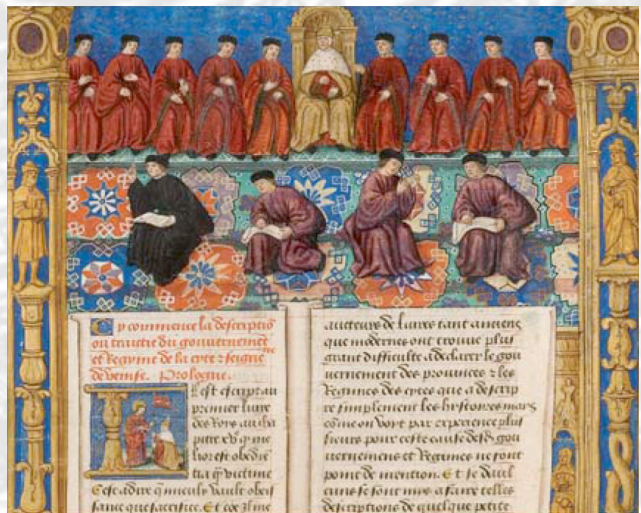 Cy commence la descriptiõ
ou traictie du gouuernemẽt
et Regyme de la cyte & seigñe
de venise. Prologue.
Il est escript au
premier liure
des Roys au cha
pitre xv q̃ me
lior est obediẽ
tia q̃ victime
C'est adire q̃ mieulx vault obeiſ
sance que sacrifice. Et
aucteurs de liures tant anciens
que modernes ont trouue plus
grant difficulte a declarer le gou
uernement des prouinces & les
Regimes des cytes que a descrip
re simplement les hystoires mais
cõme on voyt par experience plus
sieurs pour ceste cause desd gou
uernemens et Regimes ne font
point de mention. Et se daul
cuns se sont mys a faire telles
descriptions de quelque petite